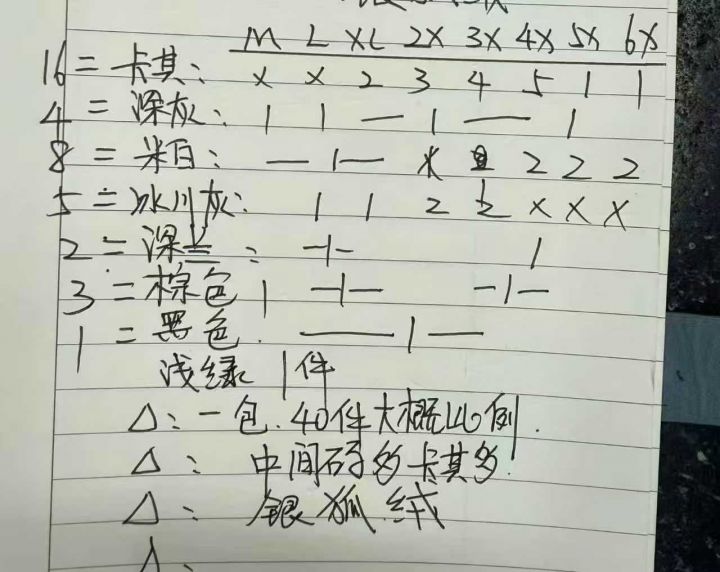 M L XL 2X 3X 4X 5X 6X
16 = 卡其: x x 2 3 4 5 1 1
4 = 深灰: 1 1 — 1 — 1
8 = 米白: — 1 — x 2 2 2
5 = 冰川灰: 1 1 2 2 x x x
2 = 深兰: —1— 1
3 = 棕色 1 —1— —1—
1 = 黑色. — 1 —
浅绿 1件
△: 一包. 40件大概比例.
△: 中间码多卡其多.
△: 银狐绒
△: